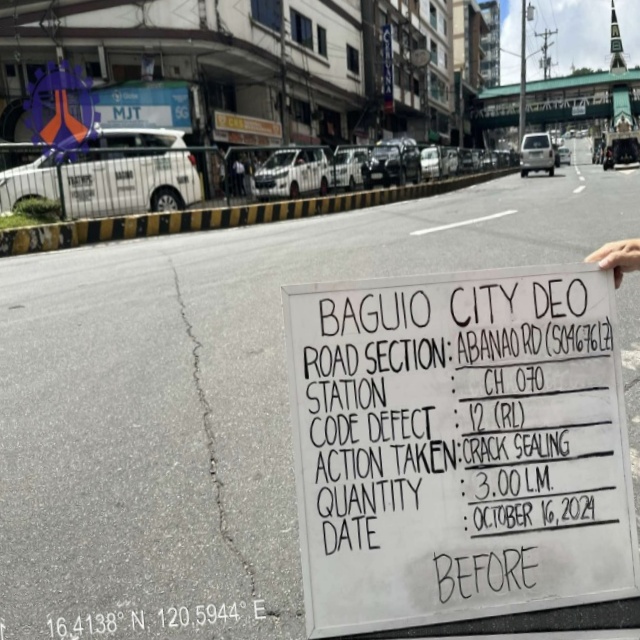 MJT
BAGUIO CITY DEO
ROAD SECTION: ABANAO RD (S04676LZ)
STATION : CH. 070
CODE DEFECT : 12 (RL)
ACTION TAKEN: CRACK SEALING
QUANTITY : 3.00 L.M.
DATE : OCTOBER 16, 2024
BEFORE
16.4138° N, 120.5944° E